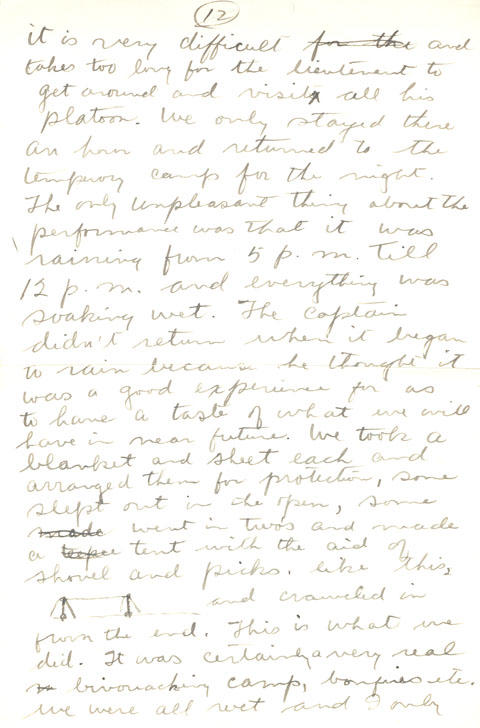 12
it is very difficult for the and
takes too long for the lieutenent to
get around and visit all his
platoon. We only stayed there
an hour and returned to the
temperory camp for the night.
The only unpleasant thing about the
performance was that it was
raining from 5 p.m. till
12 p.m. and everything was
soaking wet. The captain
didn't return when it began
to rain because he thought it
was a good experience for as
to have a taste of what we will
have in near future. We took a
blanket and sheet each and
arranged them for protection, some
slept out in the open, some
made went in twos and made
a tent with the aid of
shovel and picks. like this,
and crawled in
from the end. This is what we
did. It was certainly a very real
bivouacking camp, bonfires etc.
We were all wet and I only